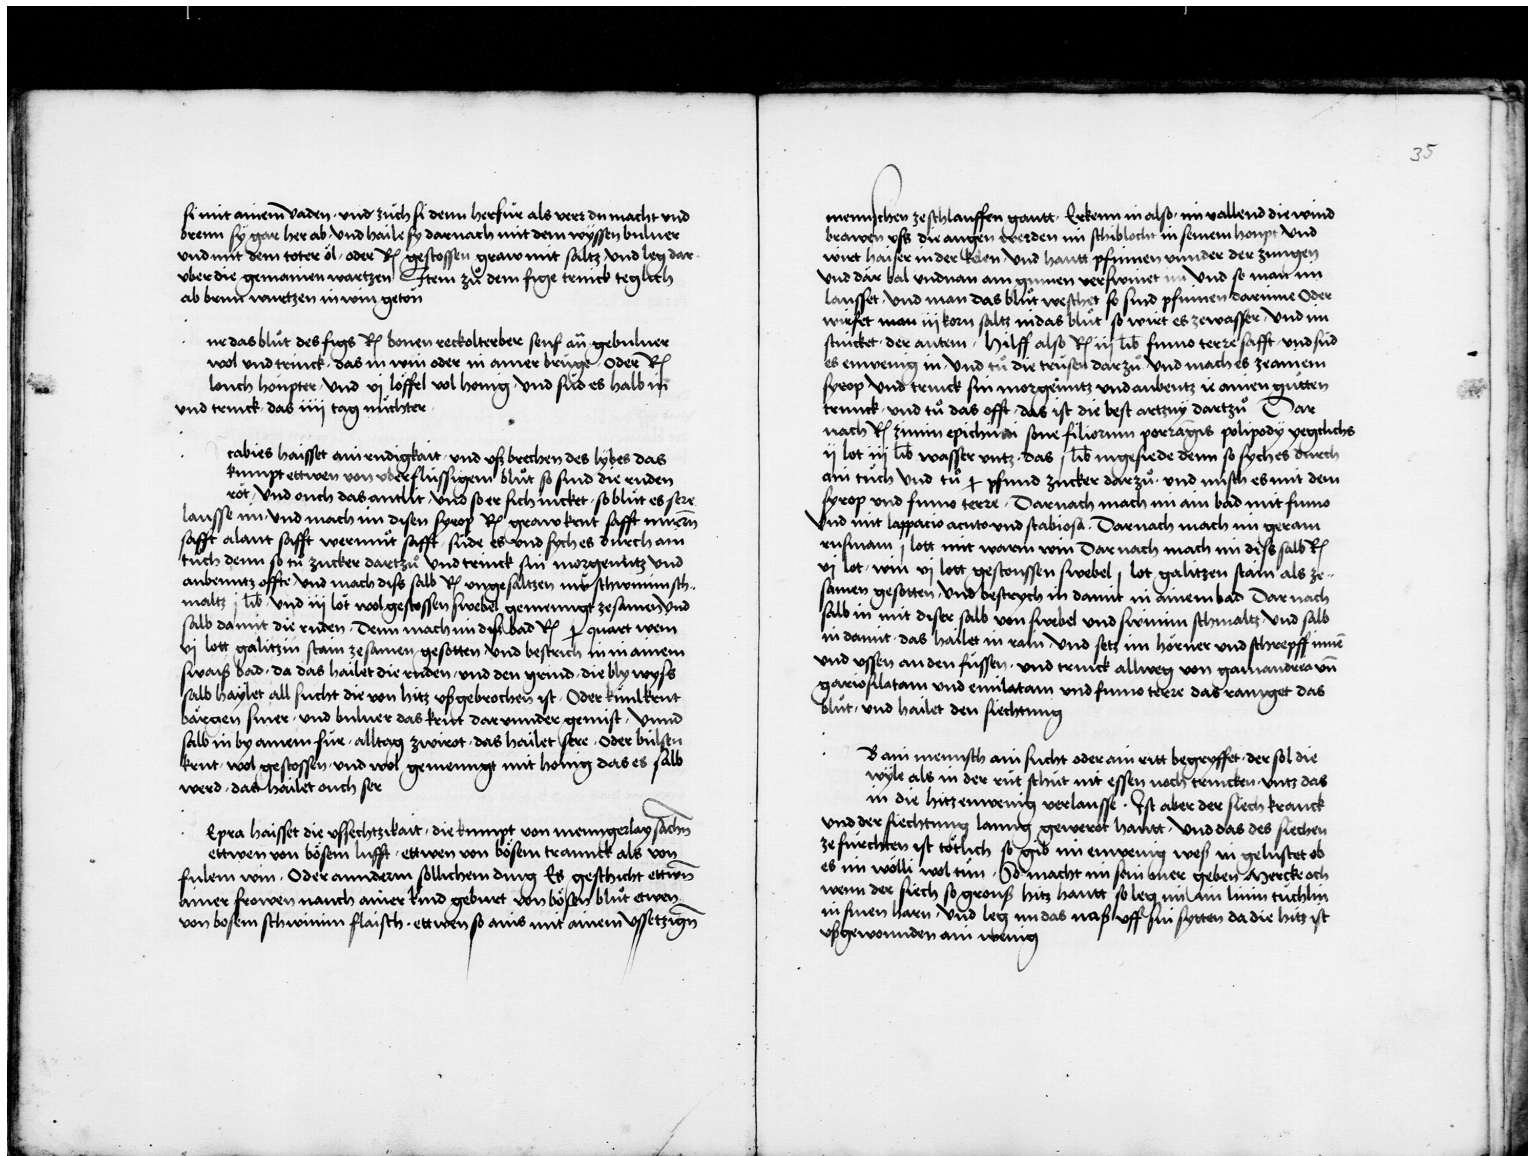 si mit ainem vaden · und züch si denn herfür als verr du macht und
brenn sy gar her ab · Und haile sy darnach mit dem wyssen buluer
und mit dem toter öl · oder R gestossen graw mit saltz und leg dar
vber die gemainen wartzen Item zů dem fige trinck teglich
ab brun wurtzen in win geton
ür das blůt des figs R bonen reckolterber senf añ gebuluer
wol und trinck · das in win oder in ainer brüge · Oder R
louch höupter · Und vj löffel vol honig · Und süd es halb in
und trinck · das iiij tag nüchter ·
cabies haisset ain rudigkait · und vsz brechen des lybes das
kumpt ettwen von vberflüssigem blůt so sind die ruden
röt · Und ouch das antlit · Und so er sich nicket · so blůt es sere
lausse im · Und mach im disen syrop R graw krut safft
safft alant safft wermůt safft · süde es und sych es durch ain
tůch denn so tů zucker dartzů Und trinck sin morgentz und
aubenntz offte Und mach diss salb R ungesaltzen schwinin sch-
maltz j lib · Und iij lot wolgestossen swebel gemenngt zesamen Und
salb damit die ruden · Denn mach im disz bad R quart wein
vj lott galitzin stain zesamen gesotten Und bestrich in in ainem
swaisz bad · da das hailet die ruden · und den grind · die bly wyss
salb haylet all sucht die von hitz vsgebrochen ist · Oder
bärgen smer · und buluer das krut dar vnnder gemist · Unnd
salb in by ainem für · alltag zwirot · das hailet sere · Oder bulsen
krut · wol gestossen · und wol gemenngt mit honig das es salb
werd · das hailet ouch ser
Epra haisset die vssechtzikait · die kumpt von mennigerlay sachn
ettwen von bösem lufft · ettwen von bösem tranck als von
fulem win · Oder annderm söllichem ding Es geschicht ettwn
ainer frowen nauch ainer kind geburt von bösen blůt etwen
von bösem schwinin flaisch · ettwen so ains mit ainem vssetzign
35
mennschen ze schlauffen gautt · Erkenn in also · im vallend die wind
brawen vss die augen werden im schiblocht in seinem houpt Und
wirt haiser in der kelen · Und hautt pfinnen vnnder der zungen
Und där bal undnan am gumen verswinet im Und so man im
lausset · Und man das blůt weschet so sind pfinnen darinne Oder
wirfet man iij korn saltz in das blůt so wirt es ze wasser · Und im
stincket · der autem · Hilff also R iij lib fumo terre safft · und süd
es ewenig in · Und tů die trüsen darzů · Und mach es zeainem
syrop Und trinck sin morgenntz und aubentz ie ainen gütten
trunck · und tů das offt · das ist die best artzny dartzů Dar
nach R zimin epichimi sene filiorum porragis polipody yegclichs
ij lot iij lib wasser untz · das j lib ingesiede denn so syches durch
ain tůch Und tů pfund zucker darzů · und misch es mit dem
syrop und fumo terre · Darnach mach im ain bad mit fumo
Und mit lappacio acuto und stabiosa · Darnach mach im geram
rusinam j lott mit warm win Dar nach mach im diss salb R
vj lot · win vj lott gestoussen swebel j lot galitzen stain als ze-
samen gesotten · Und bestrych in damit in ainem bad Dar nach
salb in mit diser salb von swebel und swinin schmaltz Und salb
in damit · das hailet in rain · Und setz im hörner und schrepff innē
und ussen an den füssen · und trinck allweg von gamandrea uñ
gariofilatam und emilatam und fumo terre das rainget das
blůt · und hailet den siechtung
B ain mennsch ain sucht oder ain ritt begryffet · der sol die
wyle als in der rüt schüt nit essen noch trincken · untz das
in die hitz enwenig verlausse · Ist aber der siech kranck
und der siechtung lanng gewerot hautt · Und das des siechen
ze fürchten ist tötlich so gib im enwenig wesz in gelustet ob
es im wölli wol tůn · So macht im sein mer geben Mercke och
wenn der siech so grousz hitz hautt so leg im ain linin tüchlin
in sinen harn · Und leg im das nasz uff sin sytten da die hitz ist
vszgewounden ain wenig